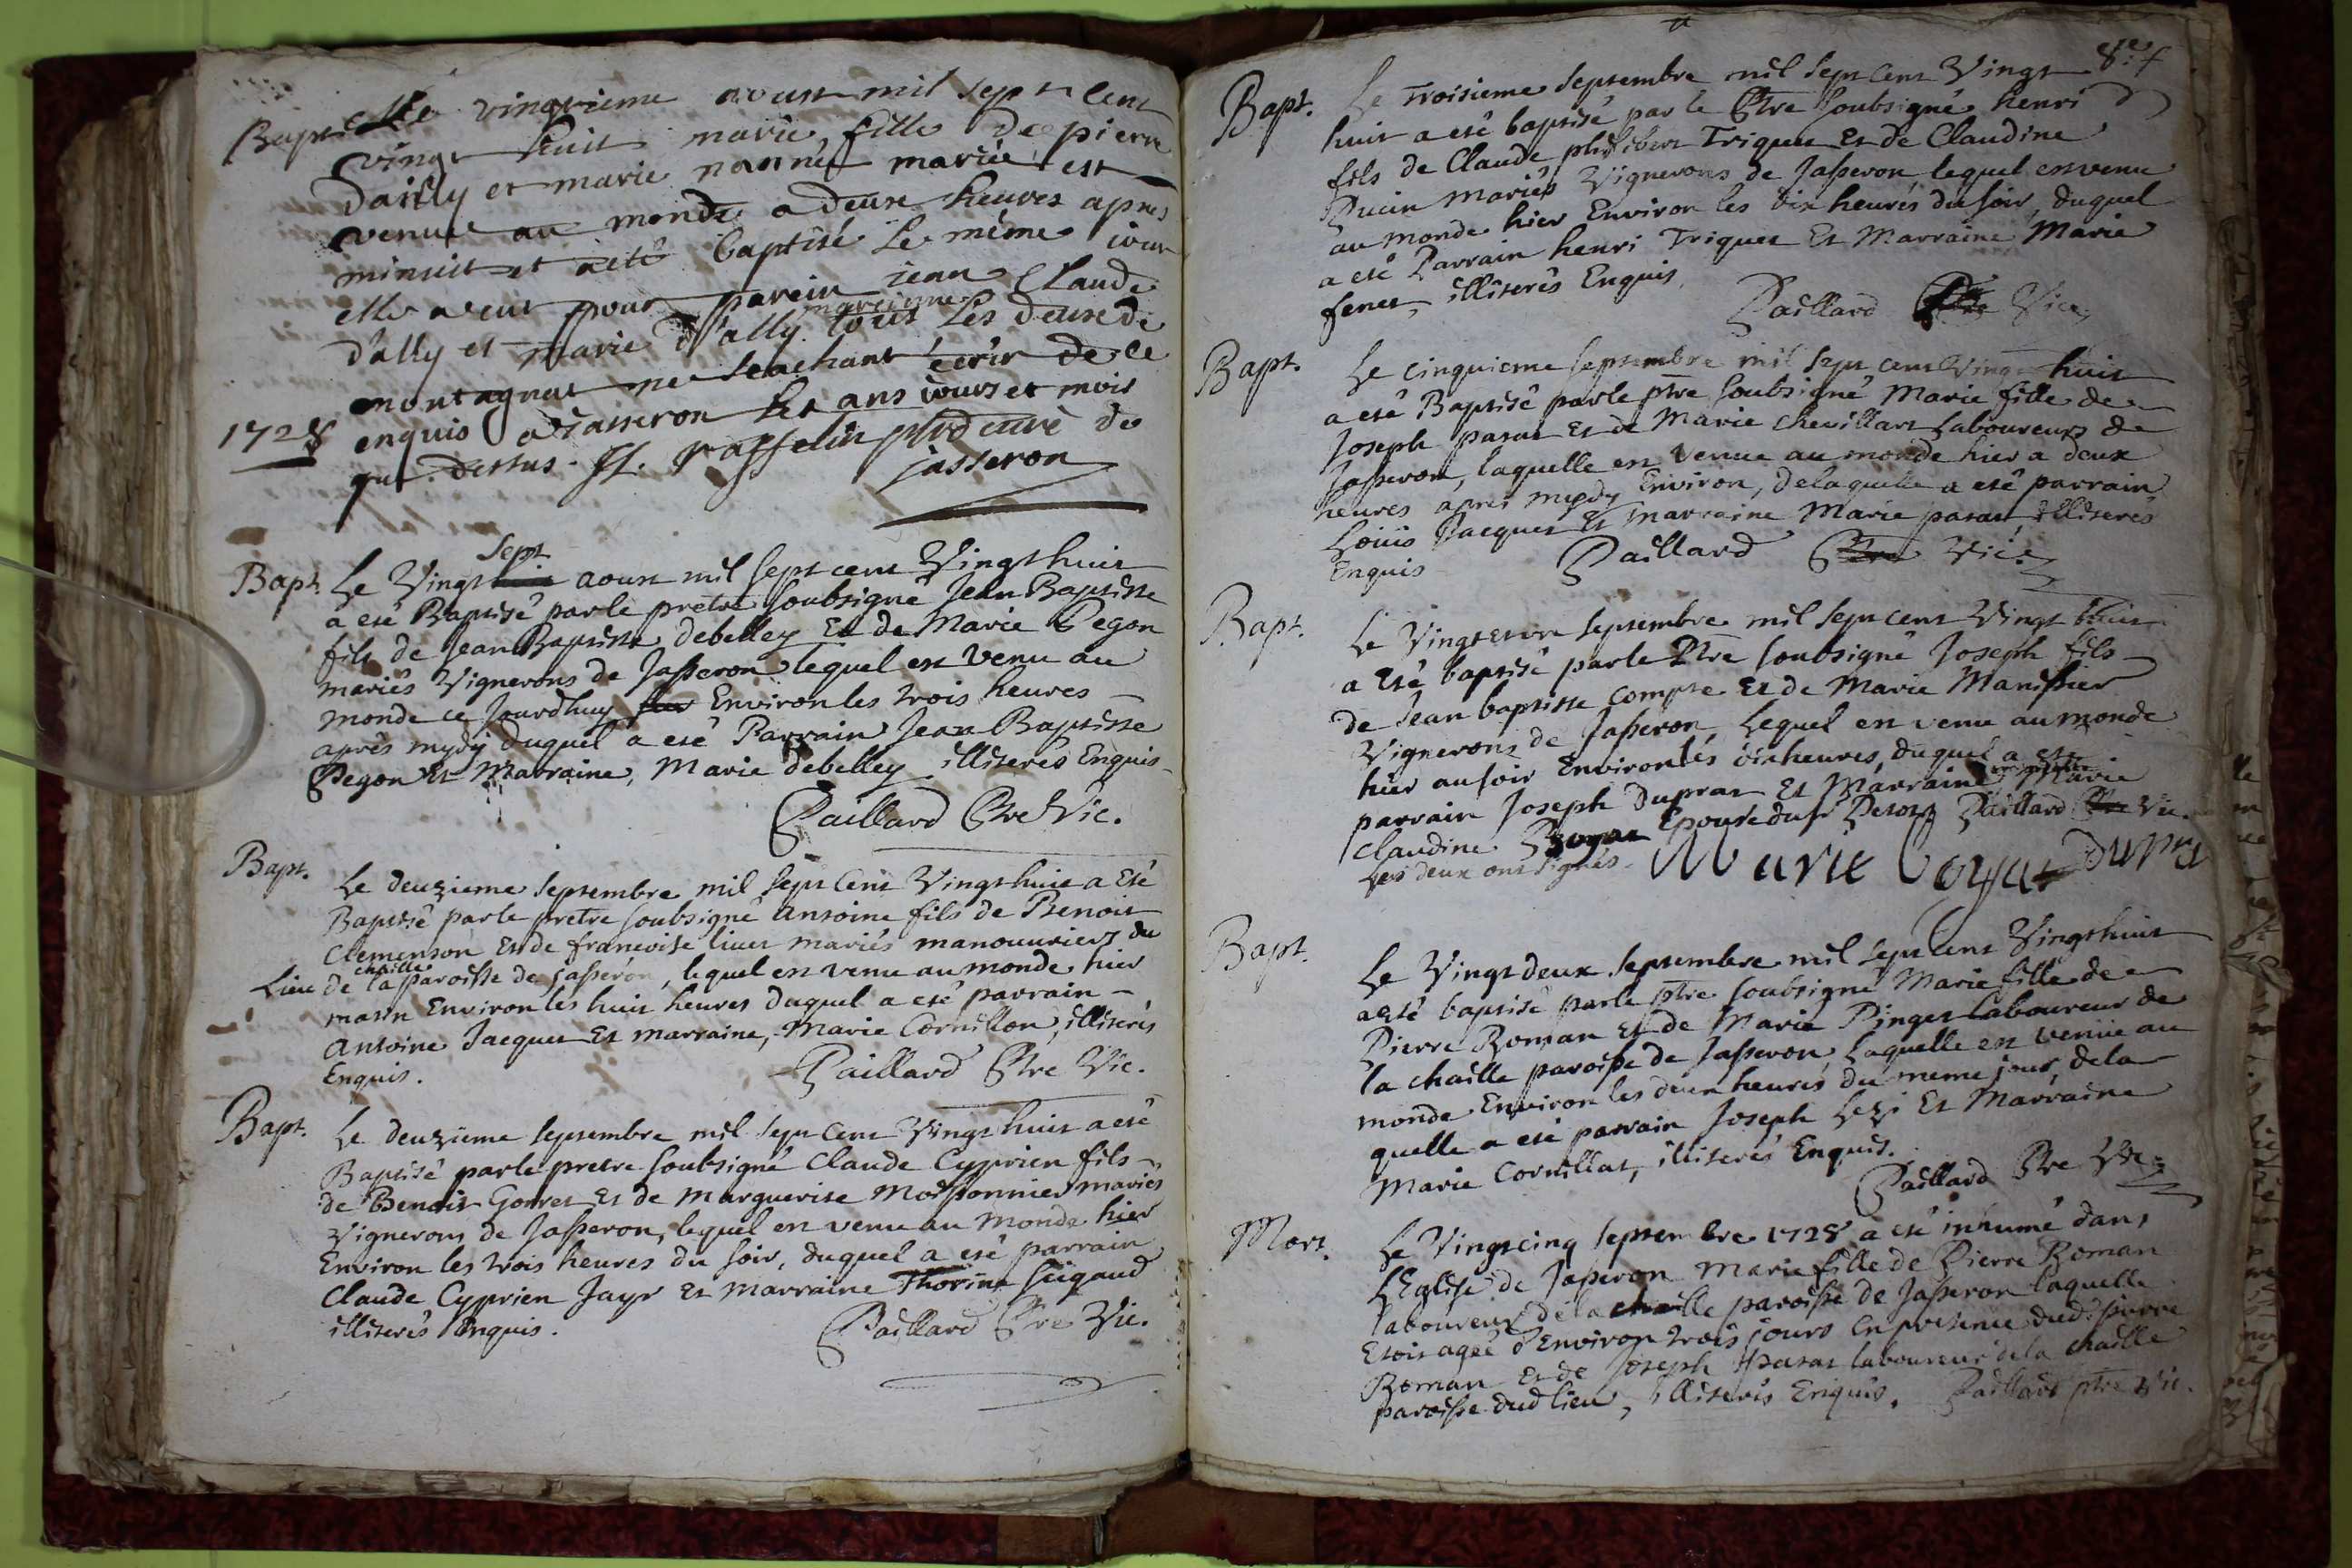 Bapt. Le vingtieme aoust mil sept cent
vingt huit marie fille de pierre
Dailly et marie nanné mariée est
venue au monde a deux heures apres
minuit et a été baptisé le même jour
elle a eut pour parein jean Claude
mareinne
d'ally et marie d'ally tous les deux de
montagnat ne sçachant écrir de ce
enquis a jasseron les ans jours et mois
1728
que dessus. ff. raffelin curé de
jasseron
Sept
Bapt. Le Vingt huit aoust mil sept cent Vingt huit
a esté Baptisé par le prêtre soubsigné Jean Baptiste
fils de Jean Baptiste debelley Et de Marie Pegon
mariés Vignerons de Jasseron lequel est venu au
monde ce jourdhuy Environ les trois heures
après mydy duquel a esté Parrain Jean Baptiste
Pegon Et Marraine, Marie debelley illiterés Enquis
Paillard Ptre Vic.
Bapt. Le deuzieme septembre mil sept cent Vingt huit a Eté
Baptisé par le pretre soubsigné Antoine fils de Benoit
Clemenson Et de francoise liuet mariés manouuriers du
chaille
Lieu de la paroisse de Jasseron, lequel est venu au monde hier
matin Environ les huit heures duquel a eté parrain
Antoine Jacquet Et marraine, Marie Cornillon, illiterés
Enquis. Paillard Ptre Vic.
Bapt. Le deuzieme septembre mil sept cent Vingt huit a eté
Baptisé par le pretre soubsigné Claude Cyprien fils
de Benoit Gorret Et de Marguerite Moissonnier mariés
Vignerons de Jasseron, lequel est venu au monde hier
Environ les trois heures du soir, duquel a eté parrain
Claude Cyprien Jayr Et marraine Thorine Seigaud
illiterés Enquis. Paillard Ptre Vic.
Bapt. Le Troisieme septembre mil sept cent Vingt
huit a eté baptisé par le Ptre soubsigné henri
fils de Claude philibert Triquet Et de Claudine
Pucin mariés Vignerons de Jasseron lequel est venu
au monde hier Environ les dix heures du soir, duquel
a eté Parrain henri Triquet Et Marraine Marie
feret, illiterés Enquis.
Paillard Ptre Vic.
Bapt. Le cinquieme septembre mil sept cent Vingt huit
a eté Baptisé par le ptre soubsigné Marie fille de
Joseph patat Et de Marie Chevillart Laboureurs de
Jasseron, laquelle est venue au monde hier a deux
heures apres mydy Environ, de laquelle a eté parrain
Loüis Jacquet Et marraine Marie patat, illiterés
Enquis Paillard Ptre Vic.
Bapt. Le Vingt et un septembre mil sept cent Vingt huit
a Eté baptisé par le Ptre soubsigné Joseph fils
de Jean baptiste compte Et de Marie Manissier
Vignerons de Jasseron, Lequel est venu au monde
hier au soir Environ les dix heures, duquel a eté
parrain Joseph Duprat Et Marraine Marie
Claudine Epouse du Paillard Ptre Vic.
Les deux ont signés. Marie
Bapt. Le Vingt deux septembre mil sept cent Vingt huit
a eté baptisé par le ptre soubsigné Marie fille de
Pierre Roman Et de Marie Pinget Laboureur de
la chaille paroisse de Jasseron, Laquelle est venüe au
monde Environ les deux heures du meme jour, de la
quelle a eté parrain Joseph Lezi Et Marraine
Marie Cornillat, illiterés Enquis.
Paillard Ptre Vic.
Mort. Le Vingt cinq septembre 1728 a eté inhumé dans
L'Eglise de Jasseron Marie fille de Pierre Roman
laboureur de la chaille paroisse de Jasseron laquelle
Etoit agée d'Environ trois jours en presence dud. pierre
Roman Et de Joseph patat laboureur de la chaille
paroisse dud lieu, illiterés Enquis. Paillard ptre Vic.